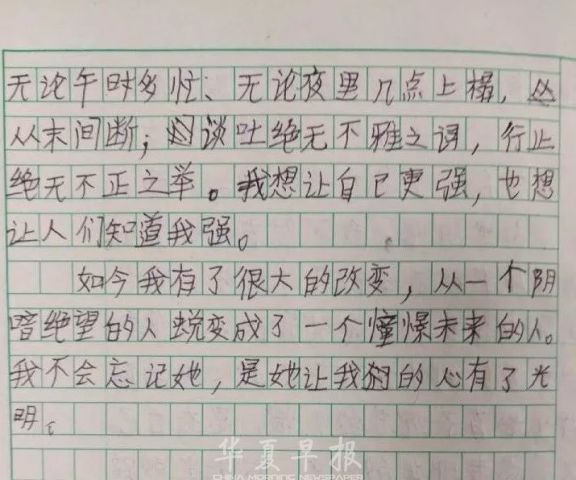 无论午时多忙、无论夜里几点上榻，
从未间断；谈吐绝无不雅之词，行止
绝无不正之举。我想让自己更强，也想
让人们知道我强。
如今我有了很大的改变，从一个阴
暗绝望的人蜕变成了一个憧憬未来的人。
我不会忘记她，是她让我的心有了光
明。
华夏早报
CHINA MORNING NEWSPAPER